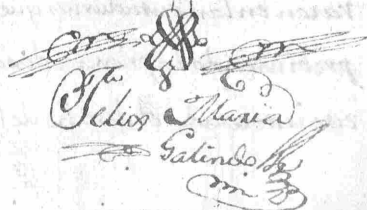 Felix Maria
Galindo